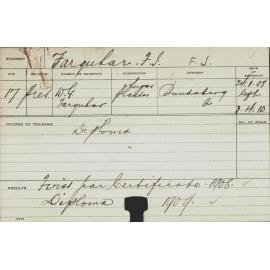 STUDENT Farquhar. F.S. F. S.
AGE RELIGION NAME OF GUARDIAN OCCUPATION ADDRESS DATE OF ENTRANCE
17 Pres. W.G. Farquhar Sugar Planter Bundaberg Q 24.1.09
Left
3.4.10
COURSE OF TRAINING
Diploma
RESULTS
First year Certificate 1908. ✓
Diploma 1909. ✓